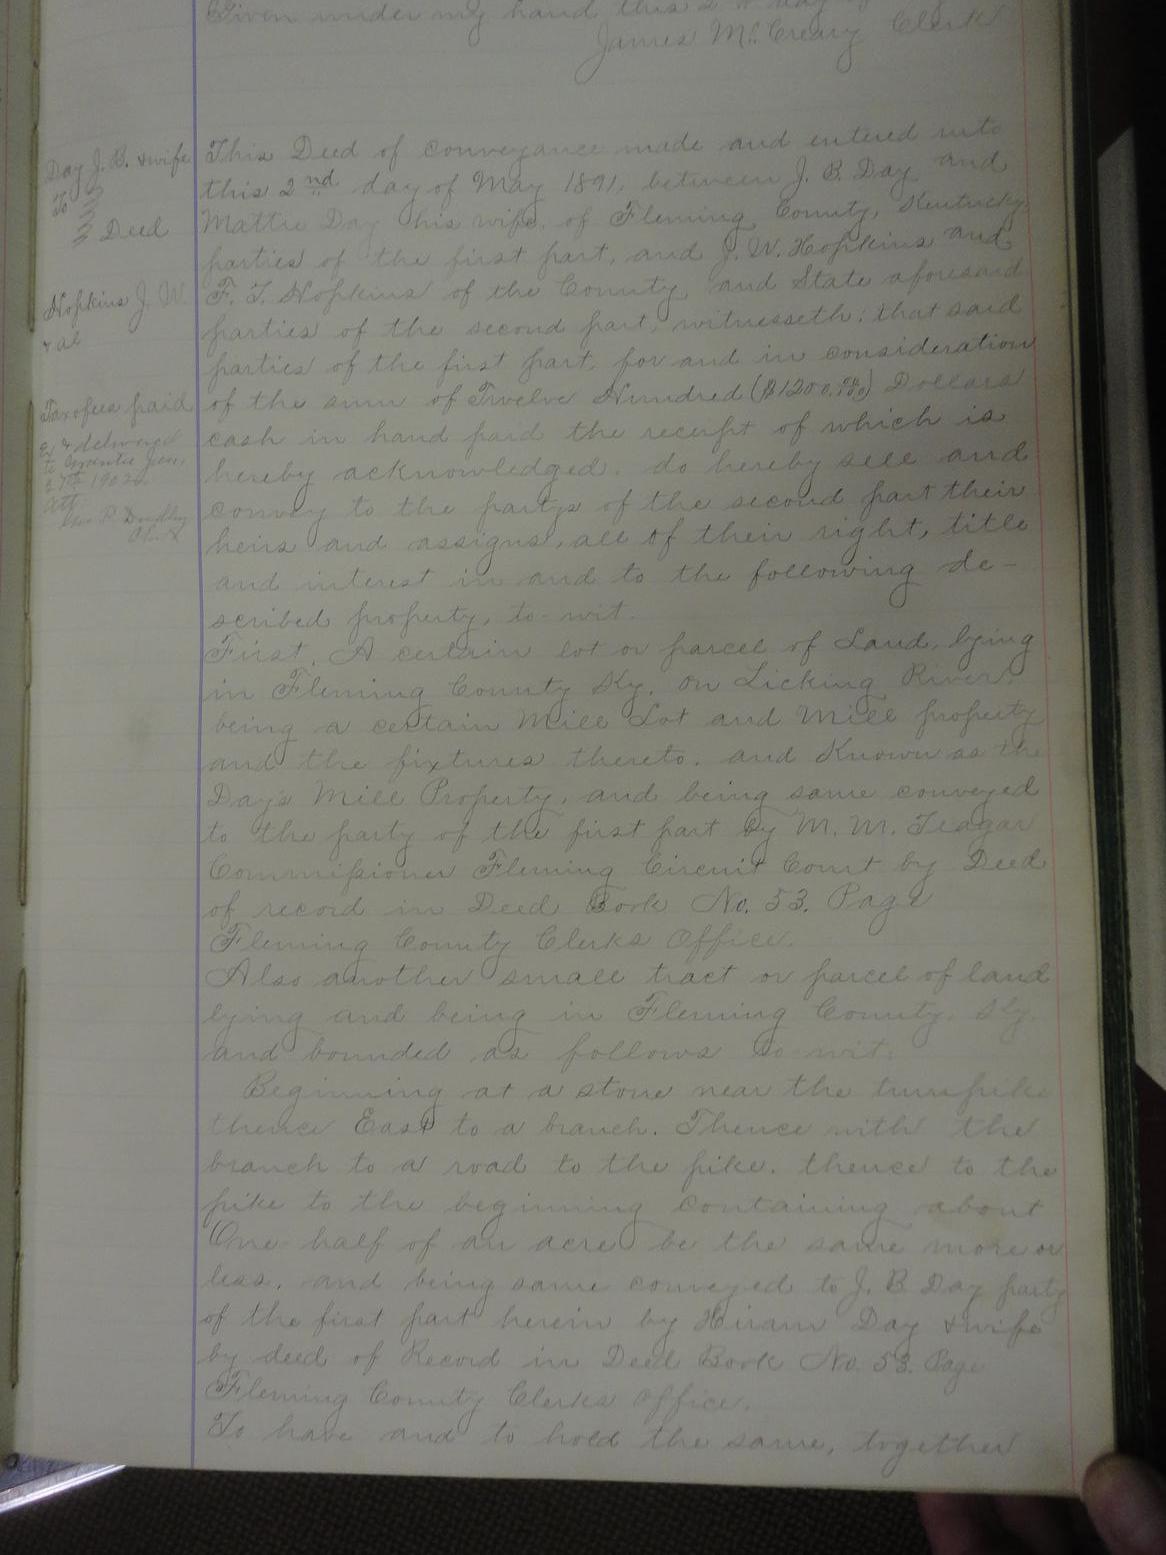 Given under my hand this 2 day of
James McCreary Clerk
Day J. B. & wife
To
Deed
Hopkins J. W.
& al
Tax & fees paid
Ex & delivered
to Grantee Jan,
27th 1902
Att
Dudley
Clerk
This Deed of conveyance made and entered into
this 2nd day of May 1891, between J. B. Day and
Mattie Day his wife, of Fleming County, Kentucky,
parties of the first part, and J. W. Hopkins and
F. T. Hopkins of the County and State aforesaid
parties of the second part, witnesseth: that said
parties of the first part, for and in consideration
of the sum of Twelve Hundred ($1200.00) Dollars
cash in hand paid the receipt of which is
hereby acknowledged, do hereby sell and
convey to the partys of the second part their
heirs and assigns, all of their right, title
and interest in and to the following de-
scribed property, to-wit.
First, A certain lot or parcel of Land, lying
in Fleming County Ky. on Licking River,
being a certain Mill Lot and Mill property
and the fixtures thereto, and Known as the
Day's Mill Property, and being same conveyed
to the party of the first part by M. M. Teagar
Commissioner Fleming Circuit Court by Deed
of record in Deed Book No. 53. Page
Fleming County Clerks Office.
Also another small tract or parcel of land
lying and being in Fleming County, Ky.
and bounded as follows to-wit:
Beginning at a stone near the turnpike
thence East to a branch. Thence with the
branch to a road to the pike, thence to the
pike to the beginning containing about
One half of an acre be the same more or
less, and being same conveyed to J. B Day party
of the first part herein by Hiram Day & wife
by deed of Record in Deed Book No. 53. Page
Fleming County Clerks Office.
To have and to hold the same, together